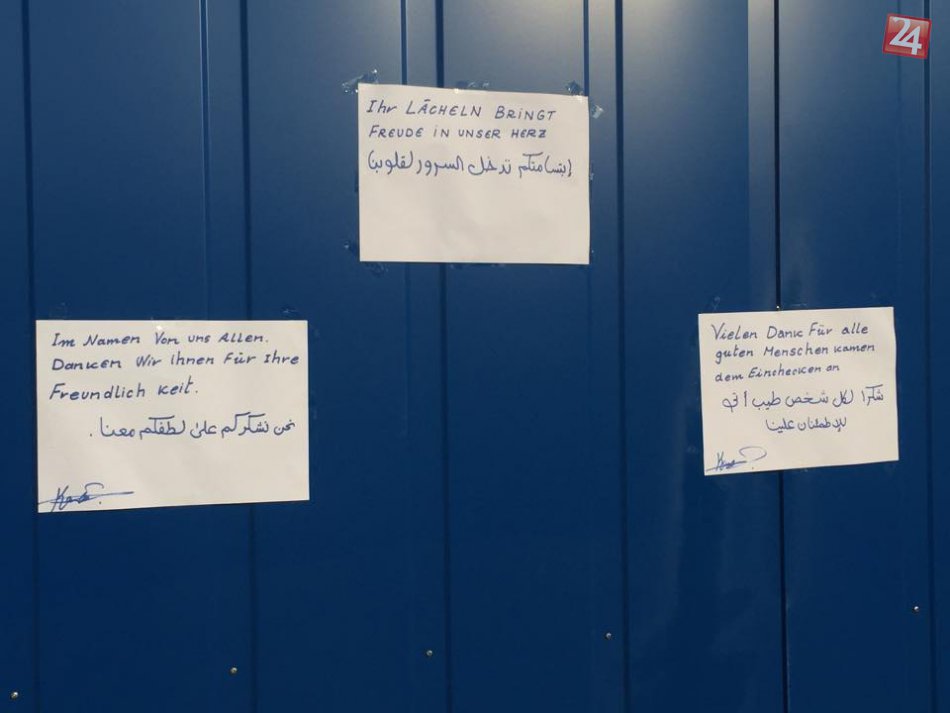 24
Ihr LÄCHELN BRINGT
FREUDE IN UNSER HERZ
إبتسامتكم تدخل السرور لقلوبنا
Im Namen Von uns Allen.
Danken Wir Ihnen Für Ihre
Freundlich keit.
نحن نشكركم على لطفكم معنا.
Vielen Dank Für alle
guten Menschen kamen
dem Einchecken an
شكرا لكل شخص طيب أتى
للإطمئنان علينا